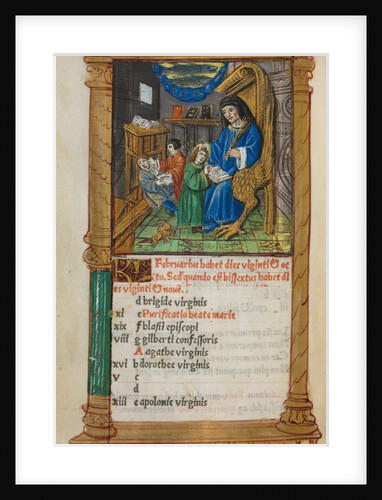 Februarius habet dies viginti oc
to. Sed quando est bissextus habet di
es viginti noue.
d brigide virginis
xi e Purificatio beate marie
xix f blasii episcopi
viii g gilberti confessoris
A agathe virginis
xvi b dorothee virginis
v c
d
xiii e apolonie virginis